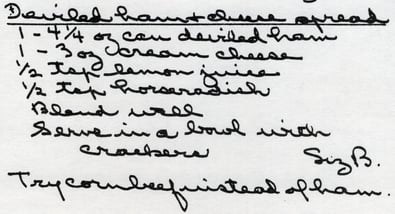 Deviled ham + cheese spread
1 - 4 1/4 oz can deviled ham
1 - 3 oz cream cheese
1/2 tsp lemon juice
1/2 tsp horseradish
Blend well
Serve in a bowl with
crackers
Siz B.
Try corn beef instead of ham.